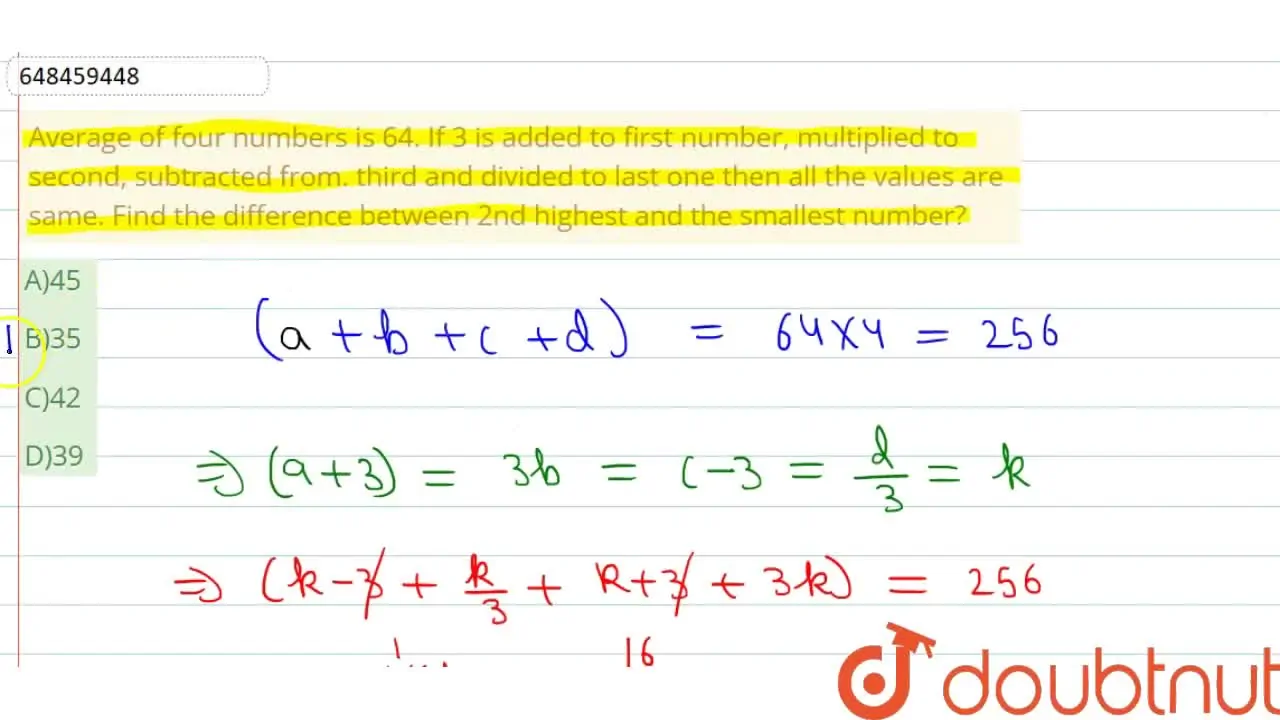 648459448
Average of four numbers is 64. If 3 is added to first number, multiplied to
second, subtracted from. third and divided to last one then all the values are
same. Find the difference between 2nd highest and the smallest number?
A)45
B)35
C)42
D)39
(a + b + c + d) = 64×4 = 256
⇒ (a+3) = 3b = c-3 = d/3 = k
⇒ (k-3 + k/3 + k+3 + 3k) = 256
16
doubtnut